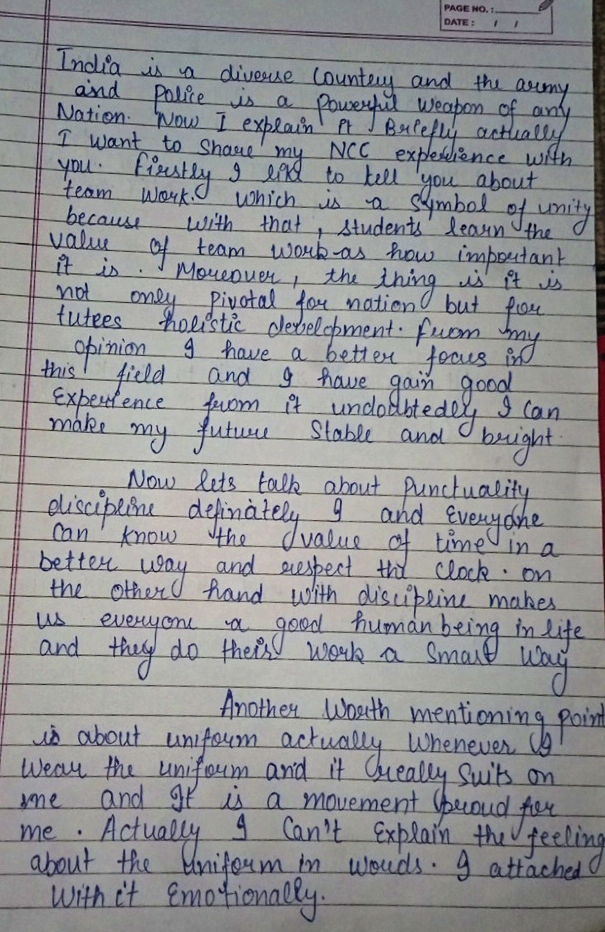 PAGE NO. :
DATE : / /
India is a diverse Country and the army
and Police is a Powerful Weapon of any
Nation. Now I explain it Briefly actually
I want to share my NCC experience with
you. Firstly I like to tell you about
team work. which is a Symbol of unity
because with that, students learn the
value of team work as how important
it is. Moreover, the thing is it is
not only pivotal for nation but for
tutees holistic development. From my
opinion I have a better focus in
this field and I have gain good
Experience from it undoubtedly I can
make my future Stable and bright.
Now lets talk about Punctuality
discipline definately I and Everyone
Can know the value of time in a
better way and respect the Clock. on
the other hand with discipline makes
us everyone a good human being in life
and they do their work a Smart Way
Another Worth mentioning point
is about uniform actually Whenever I
Wear the uniform and it really Suits on
me and It is a movement proud for
me. Actually I Can't Explain the feeling
about the uniform in words. I attached
With it Emotionally.